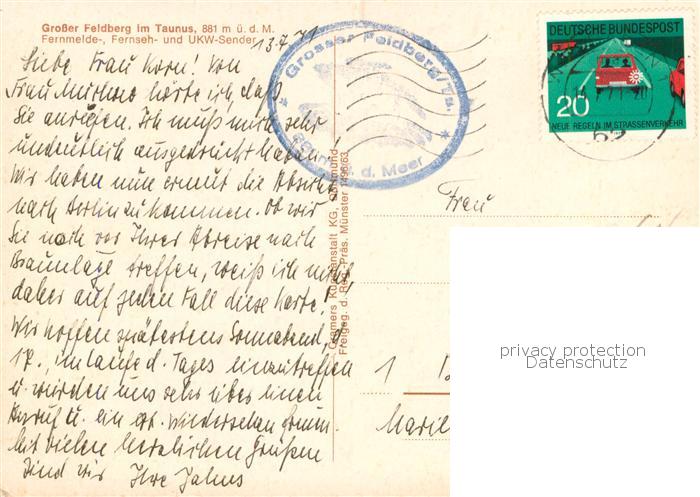 Großer Feldberg im Taunus, 881 m ü. d. M.
Fernmelde-, Fernseh- und UKW-Sender
13.7.71
Liebe Frau Korn! Von
Frau hörte ich, daß
Sie anriefen. Ich muß mich sehr
undeutlich ausgedrückt haben.
Wir haben nun erneut die Absicht
nach Berlin zu kommen. Ob wir
Sie noch vor Ihrer Abreise nach
Braunlage treffen, weiß ich nicht
daher auf jeden Fall diese Karte.
Wir hoffen spätestens Sonnabend, d.
17., im Laufe d. Tages einzutreffen
u. würden uns sehr über einen
Anruf u. ein evt. Wiedersehen freuen.
Mit vielen herzlichen Grüßen
sind wir Ihre Jahns
Grosser Feldberg/Ts.
d. Meer
Cramers Kunstanstalt KG, Dortmund
Freigeg. d. Reg.-Präs. Münster 1496/63
DEUTSCHE BUNDESPOST
20
NEUE REGELN IM STRASSENVERKEHR
Frau
1
Marie
privacy protection
Datenschutz